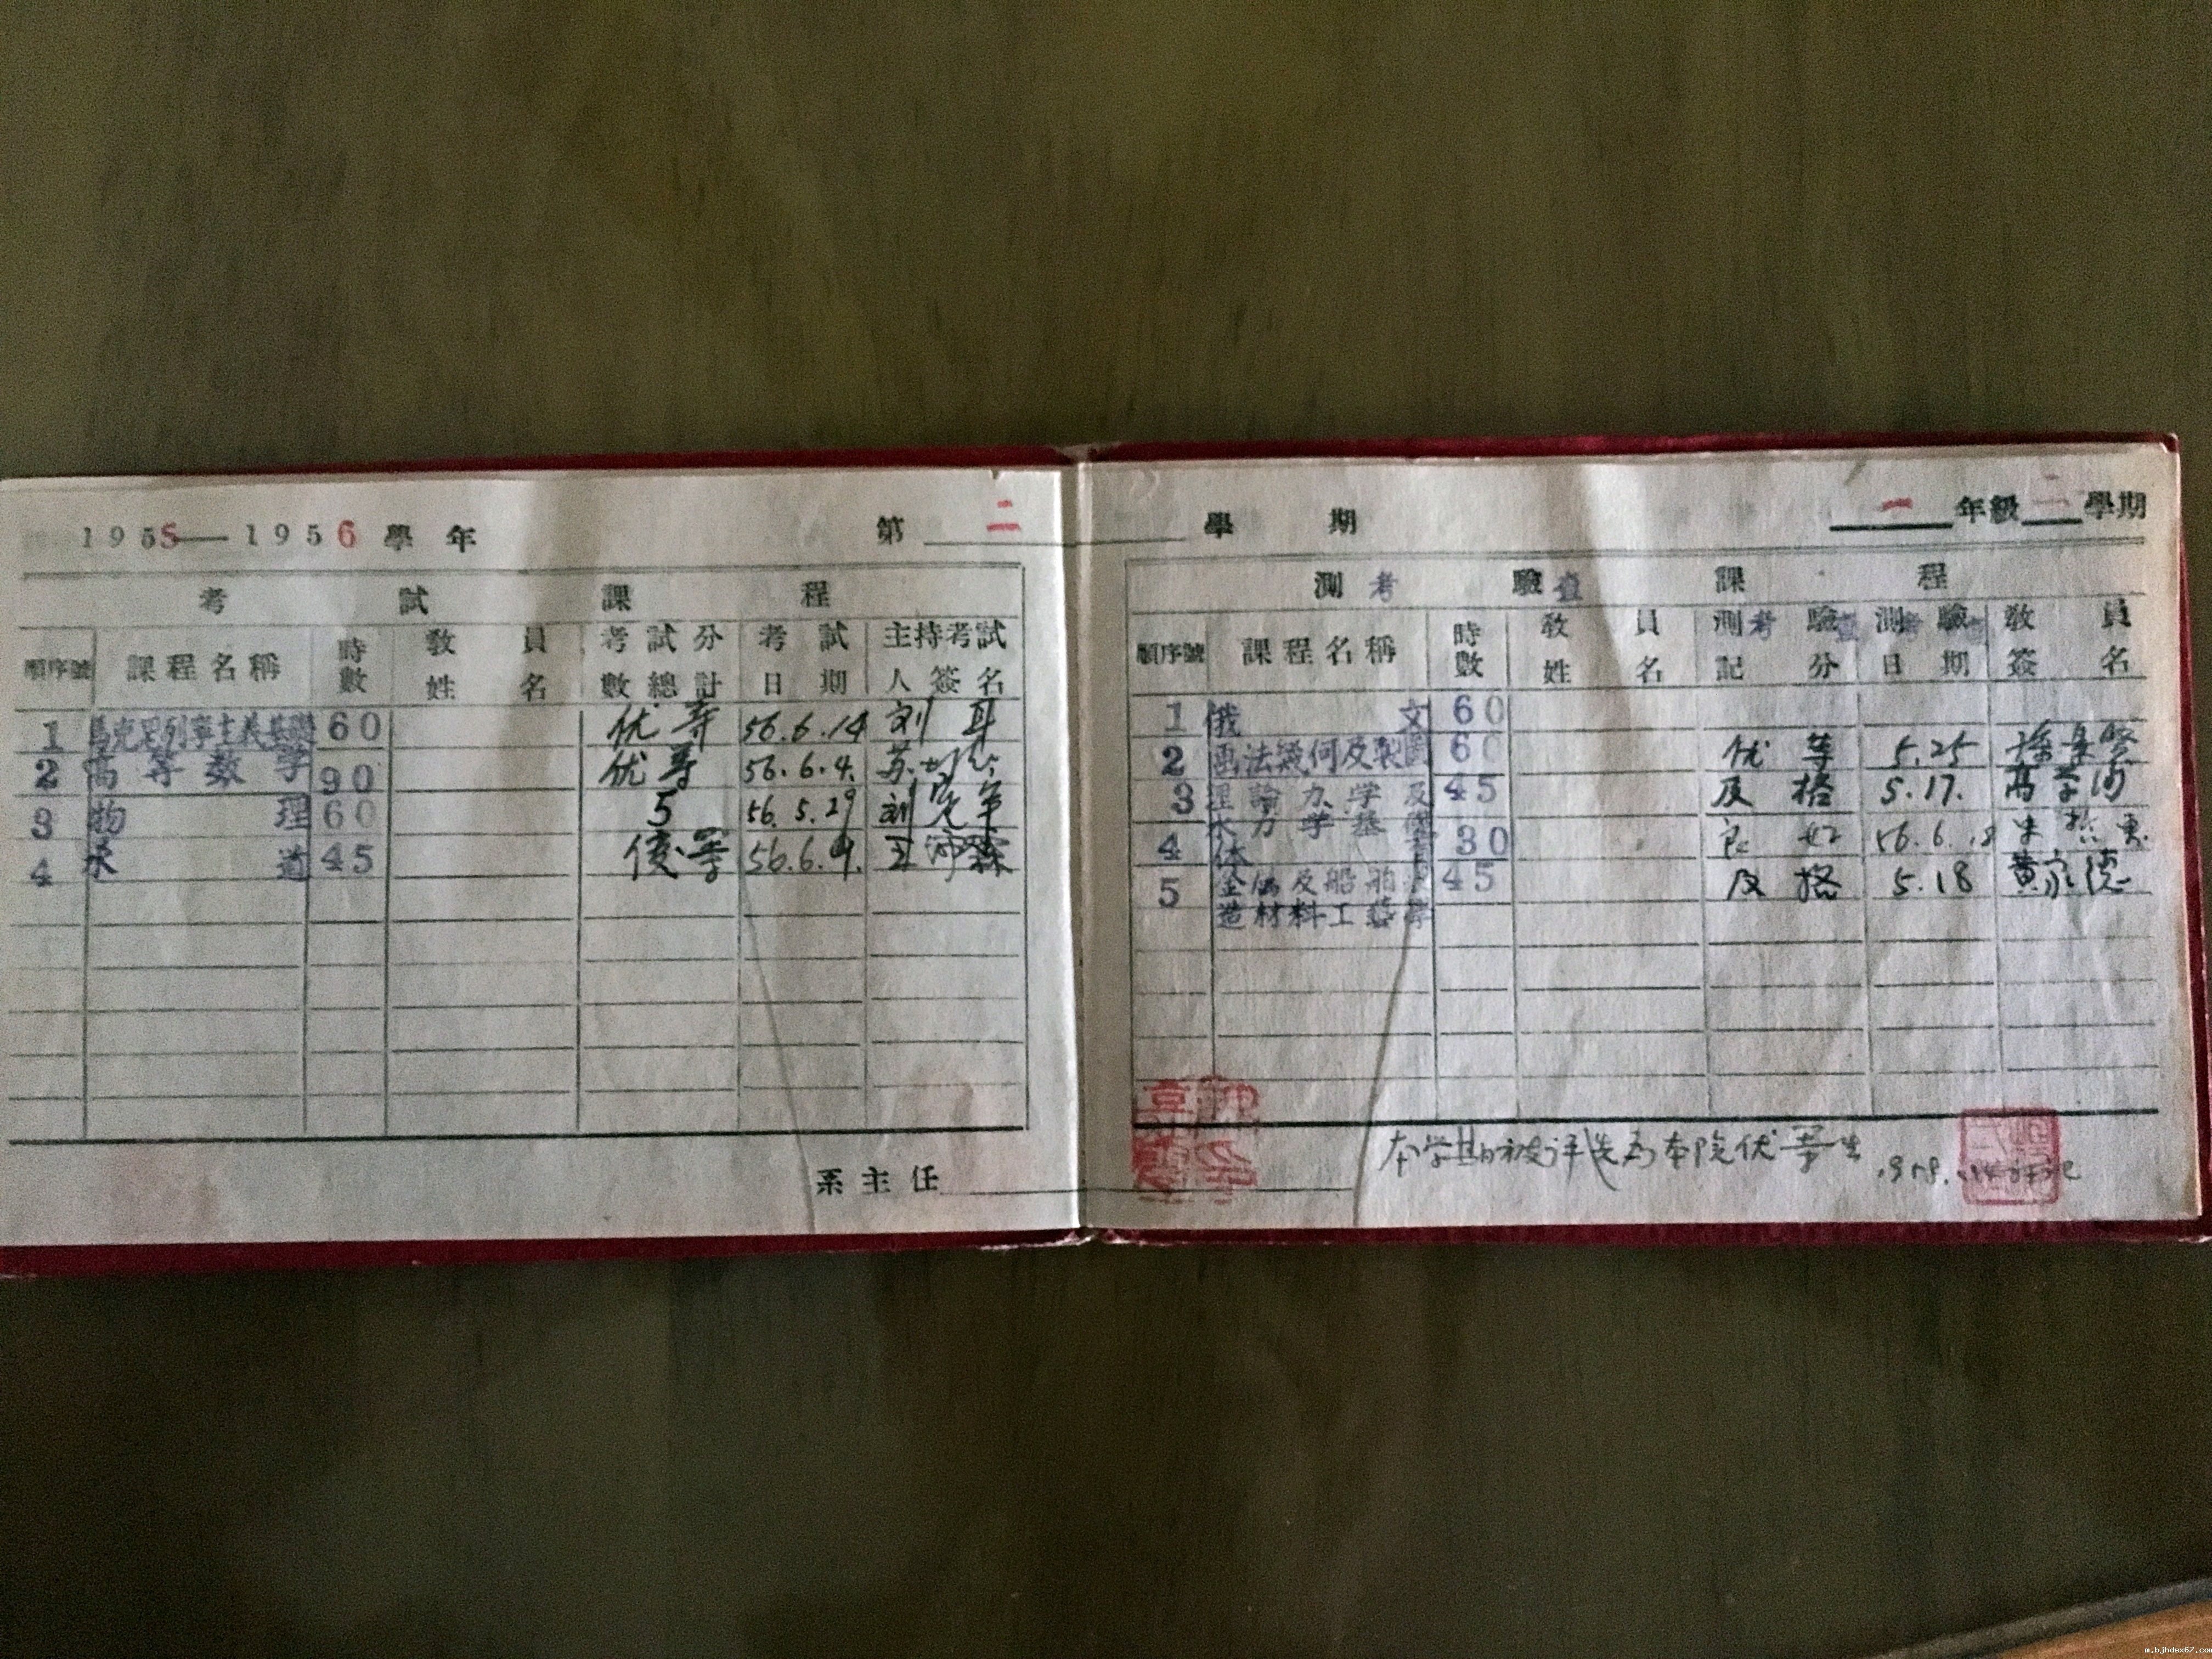 1955—1956 學年 第 二 學期 一 年級 二 學期
考試課程
順序號 課程名稱 時數 教員姓名 考試分數總計 考試日期 主持考試人簽名
1 馬克思列寧主義基礎 60 优等 56.6.14 刘耳
2 高等数学 90 优等 56.6.4.
3 物理 60 5 56.5.29
4 水道 45 優等 56.6.9.
系主任
測考驗查課程
順序號 課程名稱 時數 教員姓名 測考驗查記分 測考驗查日期 教員簽名
1 俄文 60
2 画法幾何及製圖 60 优等 5.25
3 理論力学及水力学基礎 45 及格 5.17.
4 体育 30 良好 56.6.18
5 金屬及船舶製造材料工藝學 45 及格 5.18 黄家德
本学期被评选为本院优等生